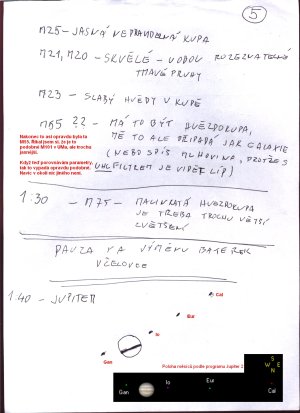 5
M25 - JASNÁ NEPRAVIDELNÁ KUPA
M21, M20 - SKVĚLÉ - VOBOU ROZEZNATELNÉ
TMAVÉ PRUHY
M23 - SLABÝ HVĚDY V KUPĚ
M55 ?? - MÁ TO BÝT HVĚZDOKUPA,
MĚ TO ALE PŘIPADÁ JAK GALAXIE
(NEBO SPÍŠ MLHOVINA, PROTŽE S
UHC FILTREM JE VIDĚT LÍP)
Nakonec to asi opravdu byla ta
M55. Říkal jsem si, že je to
podobné M101 v UMa, ale trochu
jasnější.
Když teď porovnávám parametry,
tak to vypadá opravdu podobně.
Navíc v okolí nic jiného není.
1:30 - M75 - MALINKATÁ HVEZDOKUPA
JE TŘEBA TROCHU VĚTŠÍ
ZVĚTŠENÍ
PAUZA NA VÝMĚNU BATEREK
V ČELOVCE
1:40 - JUPITER
Cal
Eur
Io
Gan
Poloha měsíců podle programu Jupiter 2
S
W E
N
Gan
Io
Eur
Cal